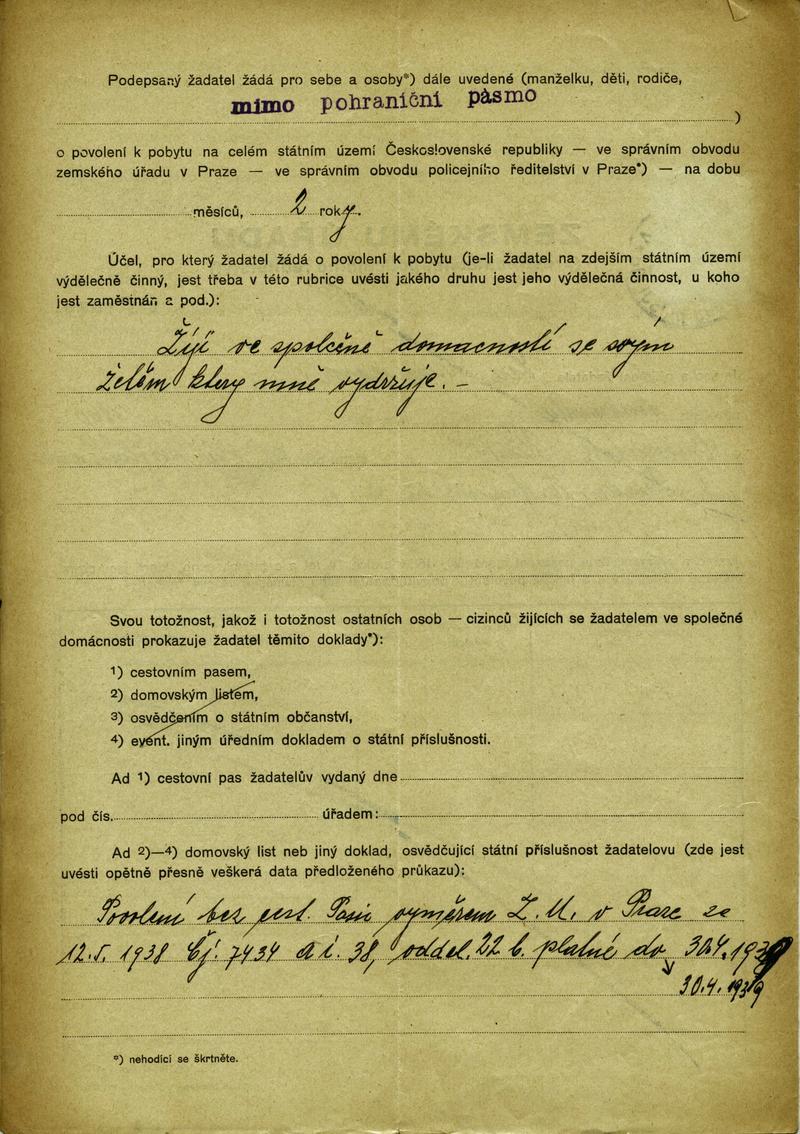 Podepsaný žadatel žádá pro sebe a osoby*) dále uvedené (manželku, děti, rodiče,
mimo pohraniční pásmo
)
o povolení k pobytu na celém státním území Československé republiky — ve správním obvodu
zemského úřadu v Praze — ve správním obvodu policejního ředitelství v Praze*) — na dobu
měsíců, 2 roky.
Účel, pro který žadatel žádá o povolení k pobytu (je-li žadatel na zdejším státním území
výdělečně činný, jest třeba v této rubrice uvésti jakého druhu jest jeho výdělečná činnost, u koho
jest zaměstnán a pod.):
Žiji ve společné domacností se svým
zetěm ktery mně vydržuje. –
Svou totožnost, jakož i totožnost ostatních osob — cizinců žijících se žadatelem ve společné
domácnosti prokazuje žadatel těmito doklady*):
1) cestovním pasem,
2) domovským listem,
3) osvědčením o státním občanství,
4) event. jiným úředním dokladem o státní příslušnosti.
Ad 1) cestovní pas žadatelův vydaný dne
pod čís. úřadem:
Ad 2)—4) domovský list neb jiný doklad, osvědčující státní příslušnost žadatelovu (zde jest
uvésti opětně přesně veškerá data předloženého průkazu):
Povolení bez cest. Pasu výměrem Z. U. v Praze ze
12.5. 1938 Čj. 7434 a i. 38, odděl. 22 b. platné do 30.4. 1939
30.4. 1939
*) nehodící se škrtněte.